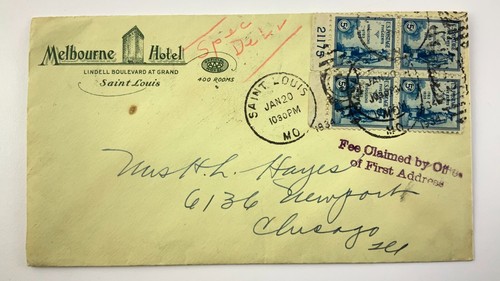 Melbourne Hotel
LINDELL BOULEVARD AT GRAND
Saint Louis
400 ROOMS
Spec
Delv
21179
U.S. POSTAGE
5¢
5¢
5¢
5¢
SAINT LOUIS
JAN 20
1030 PM
MO.
Fee Claimed by Office
of First Address
Mrs H. L. Hayes
6136 Newport
Chicago
Ill